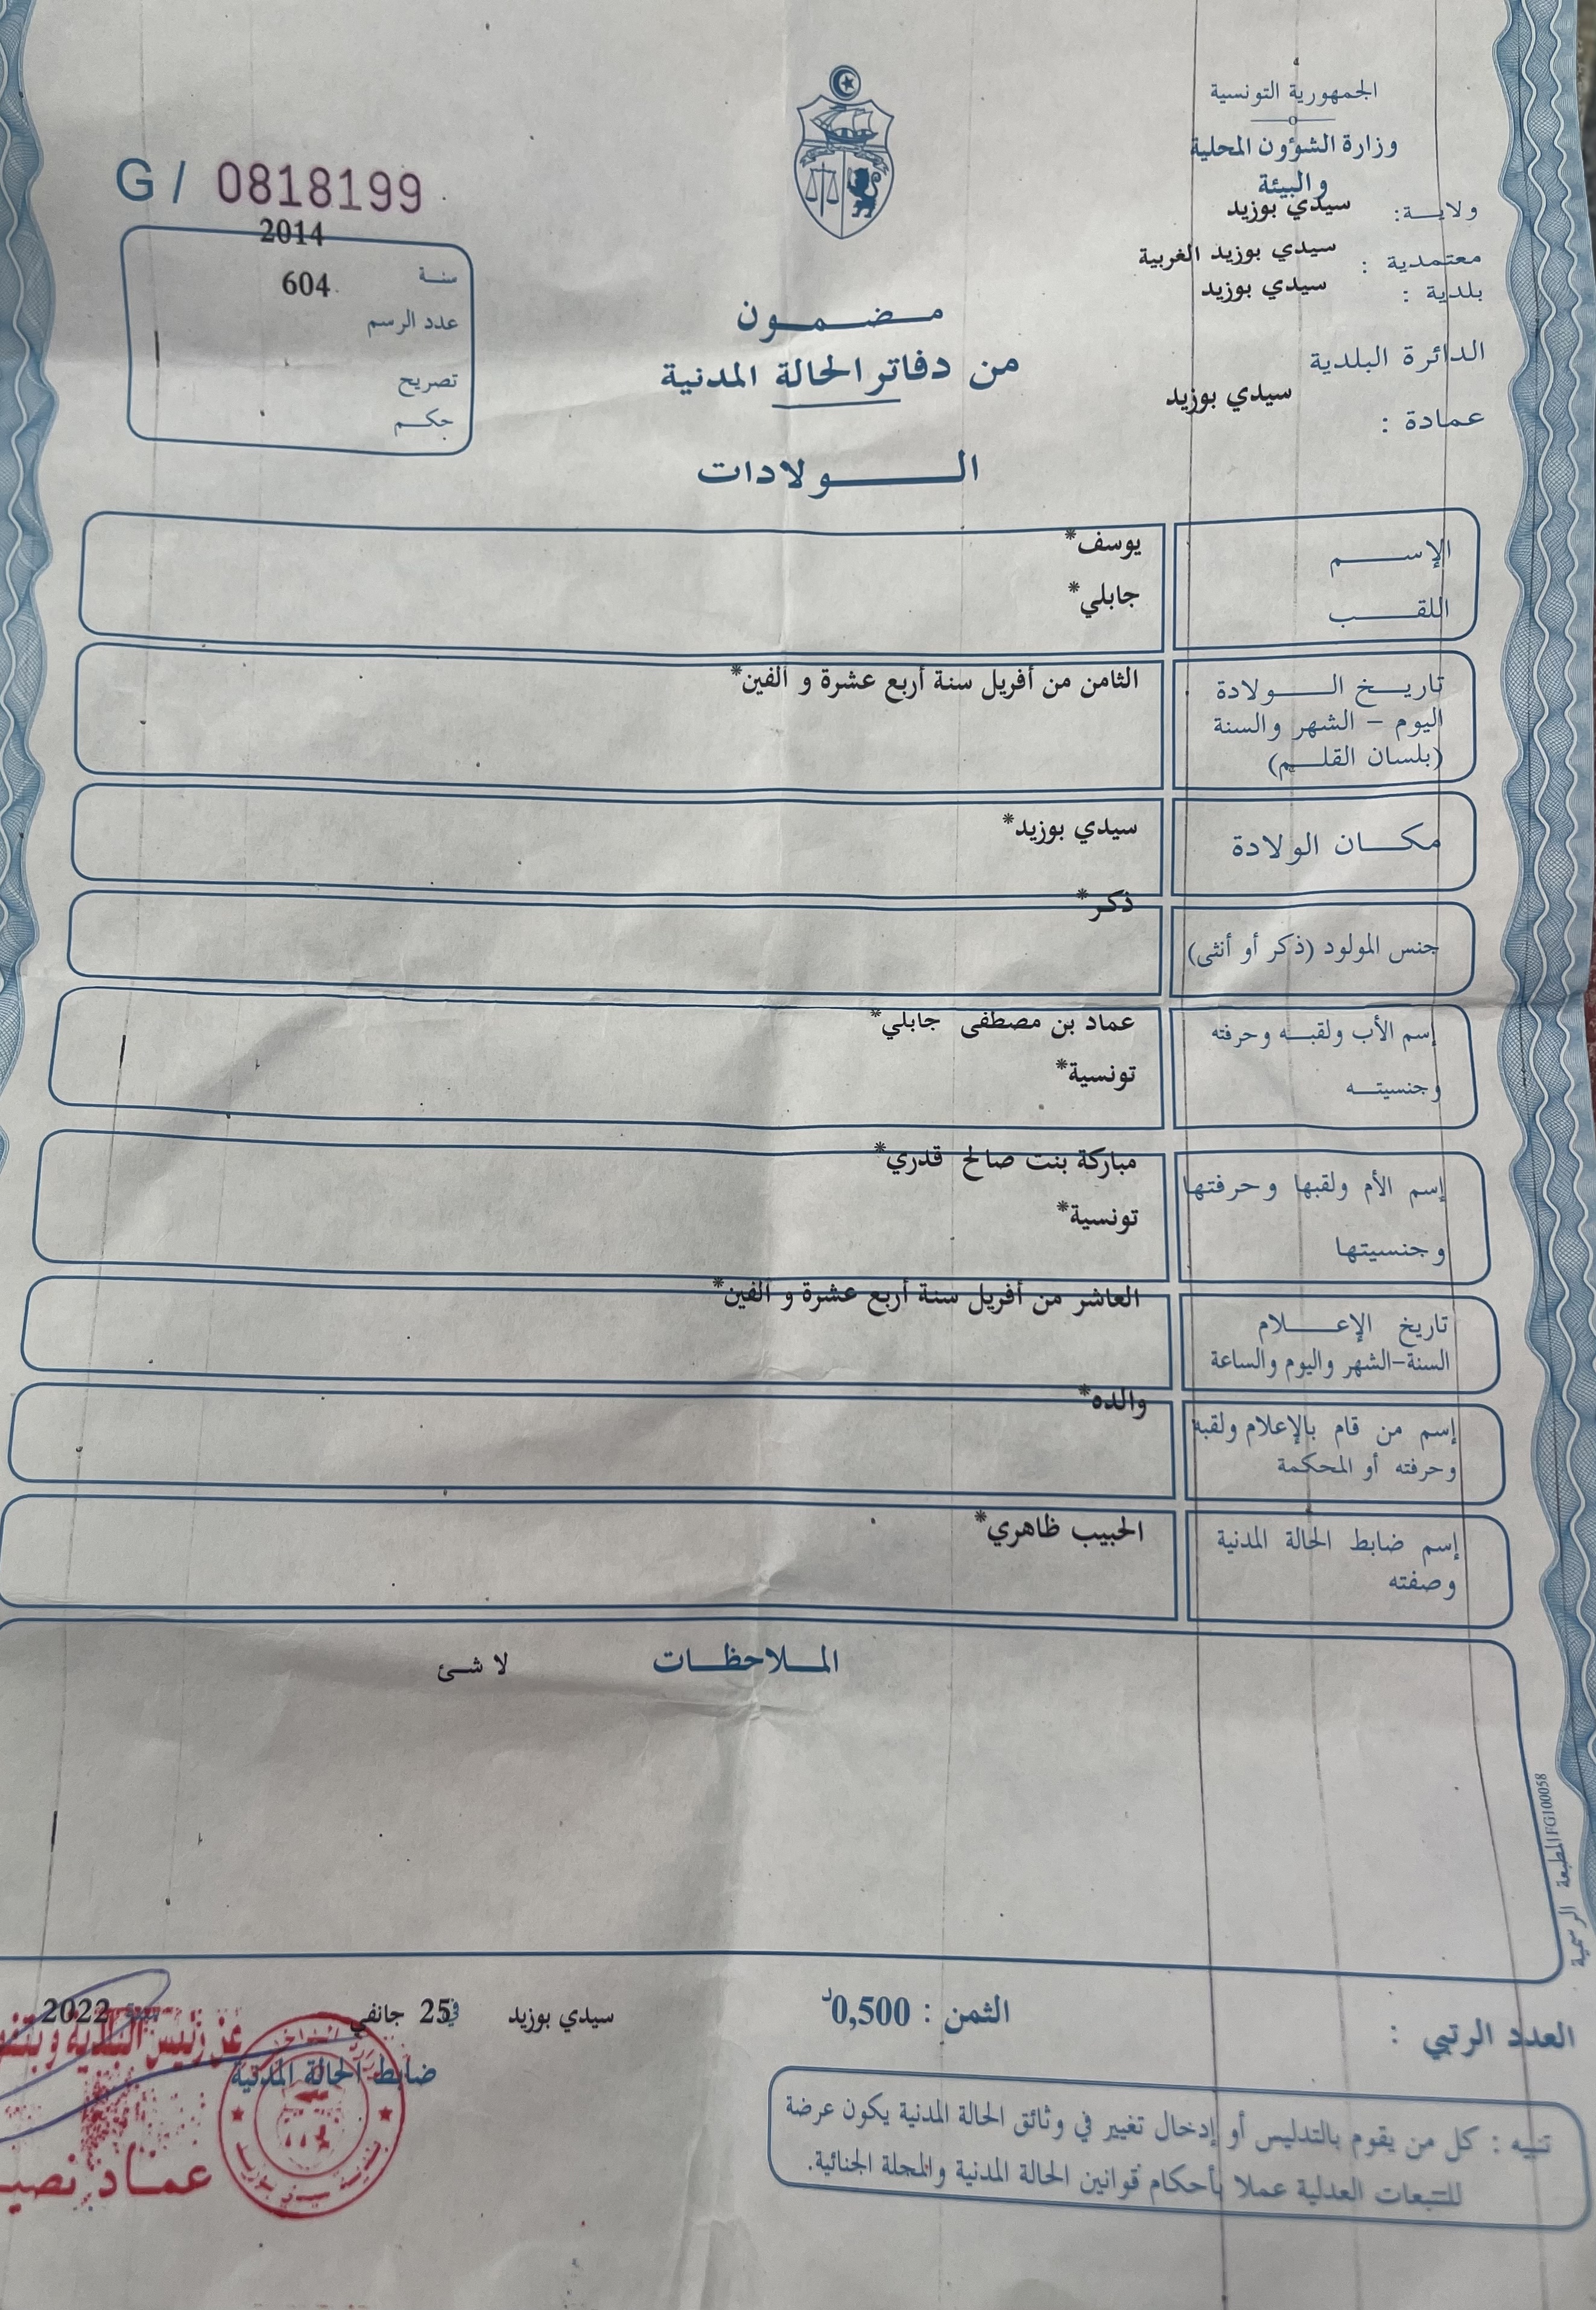 الجمهورية التونسية
وزارة الشؤون المحلية
والبيئة
ولايـــة: سيدي بوزيد
معتمدية : سيدي بوزيد الغربية
بلدية : سيدي بوزيد
الدائرة البلدية
عمادة : سيدي بوزيد
G / 0818199
2014
سنة
604
عدد الرسم
تصريح
حكم
مضمون
من دفاتر الحالة المدنية
الولادات
الإسم يوسف*
اللقب جابلي*
تاريخ الولادة الثامن من أفريل سنة أربع عشرة و ألفين*
اليوم - الشهر والسنة
(بلسان القلم)
مكان الولادة سيدي بوزيد*
جنس المولود (ذكر أو أنثى) ذكر*
إسم الأب ولقبه وحرفته عماد بن مصطفى جابلي*
وجنسيته تونسية*
إسم الأم ولقبها وحرفتها مباركة بنت صالح قدري*
وجنسيتها تونسية*
تاريخ الإعلام العاشر من أفريل سنة أربع عشرة و ألفين*
السنة-الشهر واليوم والساعة
إسم من قام بالإعلام ولقبه والده*
وحرفته أو المحكمة
إسم ضابط الحالة المدنية الحبيب ظاهري*
وصفته
الملاحظات لا شئ
المطبعة الرسمية FG100058
العدد الرتبي :
الثمن : 0,500د
سيدي بوزيد في 25 جانفي 2022
ضابط الحالة المدنية
عن رئيس البلدية و
عماد
تنبيه : كل من يقوم بالتدليس أو إدخال تغيير في وثائق الحالة المدنية يكون عرضة
للتتبعات العدلية عملا بأحكام قوانين الحالة المدنية والمجلة الجنائية.